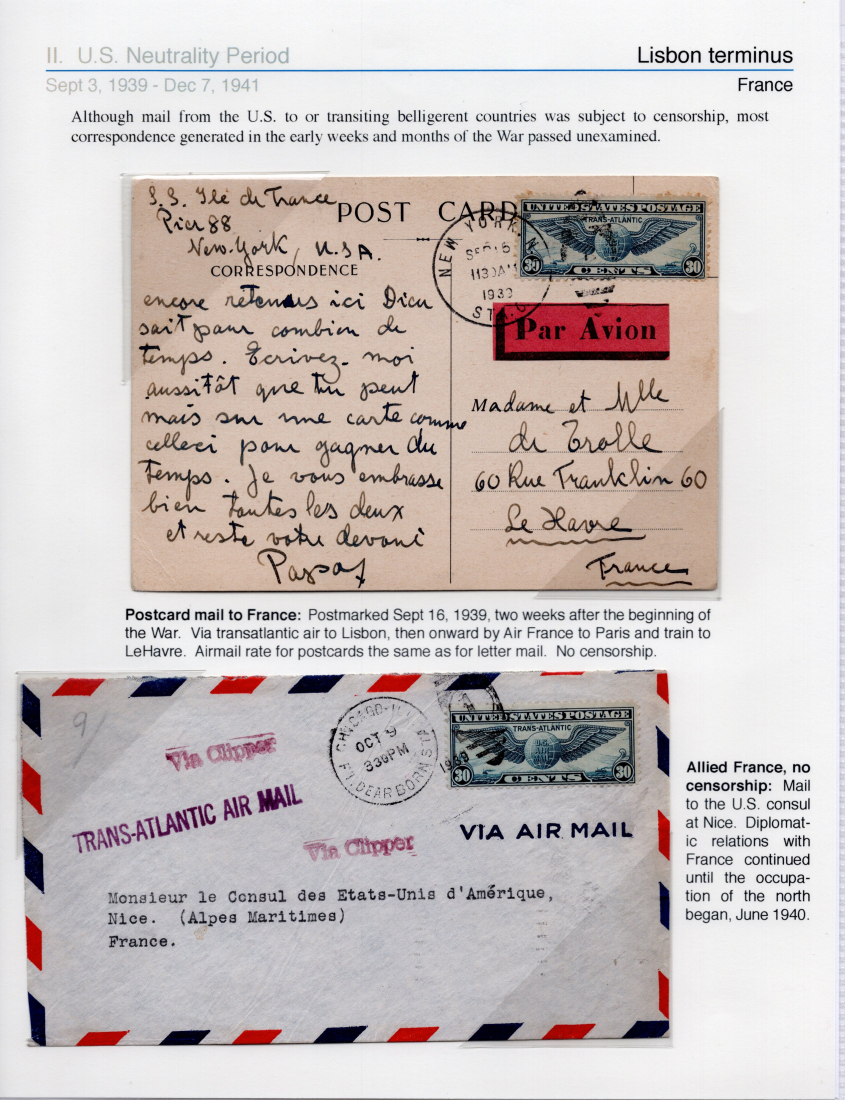 II. U.S. Neutrality Period
Lisbon terminus
Sept 3, 1939 - Dec 7, 1941
France
Although mail from the U.S. to or transiting belligerent countries was subject to censorship, most
correspondence generated in the early weeks and months of the War passed unexamined.
S.S. Ile de France
Pier 88
New-York, U.S.A.
POST CARD
CORRESPONDENCE
encore retenus ici Dieu
sait pour combien de
temps. Ecrivez-moi
aussitôt que tu peut
mais sur une carte comme
celleci pour gagner du
temps. Je vous embrasse
bien toutes les deux
et reste votre devoué
NEW YORK, N
SEP 16
1130AM
1939
STA.
UNITED STATES POSTAGE
TRANS-ATLANTIC
30 CENTS 30
Par Avion
Madame et Mlle
de Trolle
60 Rue Franklin 60
Le Havre
France
Postcard mail to France: Postmarked Sept 16, 1939, two weeks after the beginning of
the War. Via transatlantic air to Lisbon, then onward by Air France to Paris and train to
LeHavre. Airmail rate for postcards the same as for letter mail. No censorship.
9/
Via Clipper
TRANS-ATLANTIC AIR MAIL
Via Clipper
CHICAGO-ILL
OCT 9
830PM
FT. DEARBORN STA
1939
UNITED STATES POSTAGE
TRANS-ATLANTIC
U.S.
AIR
MAIL
30 CENTS 30
VIA AIR MAIL
Monsieur le Consul des Etats-Unis d'Amérique,
Nice. (Alpes Maritimes)
France.
Allied France, no
censorship: Mail
to the U.S. consul
at Nice. Diplomat-
ic relations with
France continued
until the occupa-
tion of the north
began, June 1940.